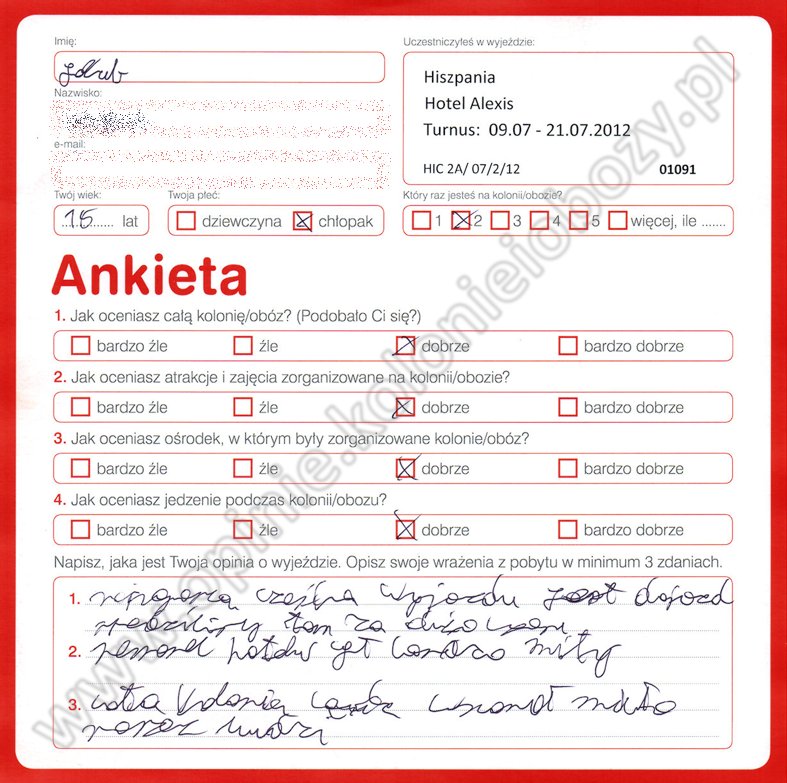 Imię:
Jakub
Uczestniczyłeś w wyjeździe:
Hiszpania
Hotel Alexis
Turnus: 09.07 - 21.07.2012
HIC 2A/ 07/2/12 01091
Nazwisko:
e-mail:
Twój wiek:
15 lat
Twoja płeć:
dziewczyna chłopak
Który raz jesteś na kolonii/obozie?
1 2 3 4 5 więcej, ile .......
Ankieta
1. Jak oceniasz całą kolonię/obóz? (Podobało Ci się?)
bardzo źle źle dobrze bardzo dobrze
2. Jak oceniasz atrakcje i zajęcia zorganizowane na kolonii/obozie?
bardzo źle źle dobrze bardzo dobrze
3. Jak oceniasz ośrodek, w którym były zorganizowane kolonie/obóz?
bardzo źle źle dobrze bardzo dobrze
4. Jak oceniasz jedzenie podczas kolonii/obozu?
bardzo źle źle dobrze bardzo dobrze
Napisz, jaka jest Twoja opinia o wyjeździe. Opisz swoje wrażenia z pobytu w minimum 3 zdaniach.
1. wyjazdu jest dojazd
tam za dużo
2. personel miły
3. mało
www.opinie.kolonieiobozy.pl